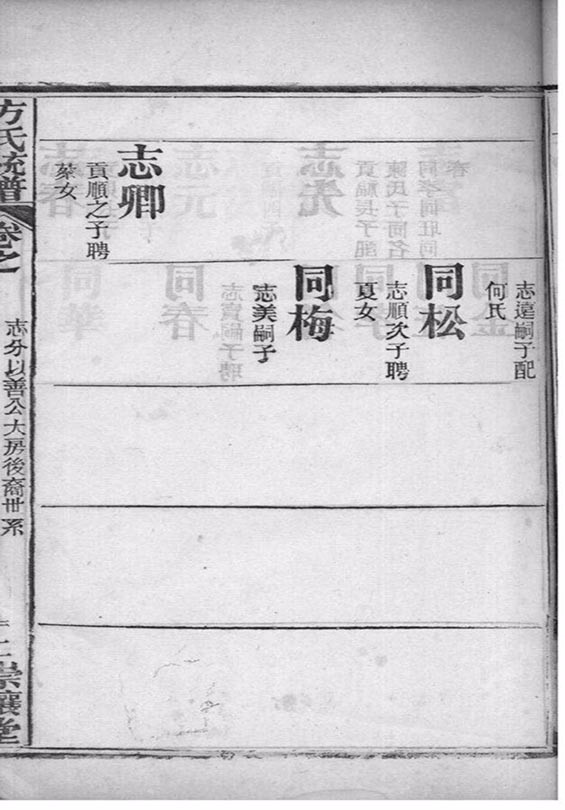 志卿
貢順之子聘
蔡女
志遠嗣子配
何氏
同松
志順次子聘
夏女
同梅
志美嗣子
方氏統譜
卷之
志分以善公大房後裔世系
崇讓堂